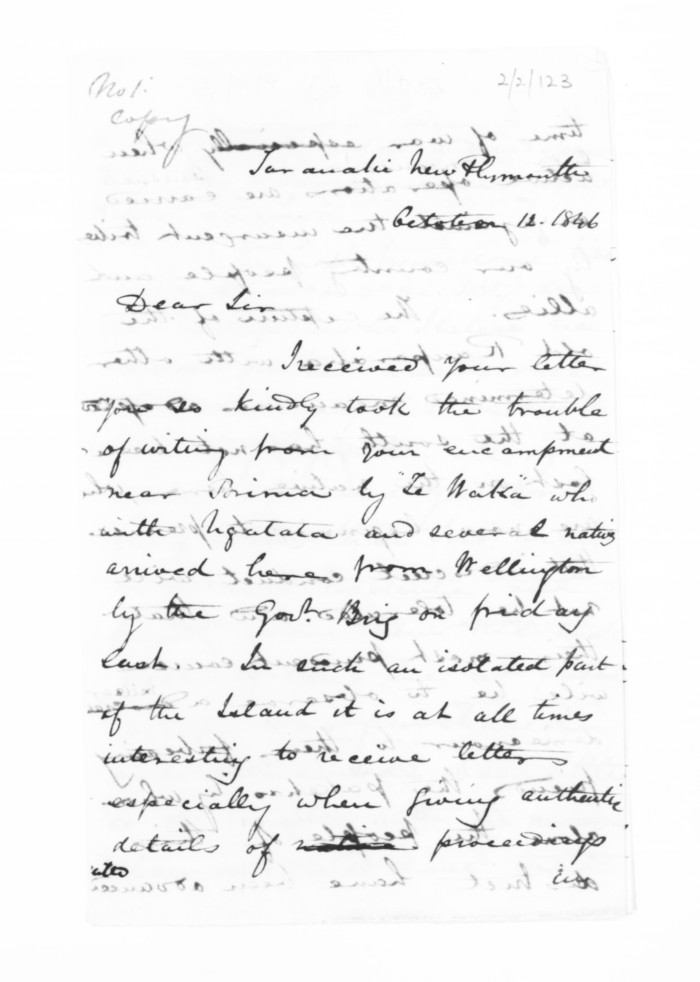 No 1.
Copy
2/2/123
Taranaki New Plymouth
October 12. 1846
Dear Sir
I received your letter
you so kindly took the trouble
of writing from your encampment
near Porirua by "Te Waka" who
with Ngatata and several natives
arrived here from Wellington
by the Govt. Brig on friday
last. In such an isolated part
of the Island it is at all times
interesting to receive letters
especially when giving authentic
details of proceedings
in